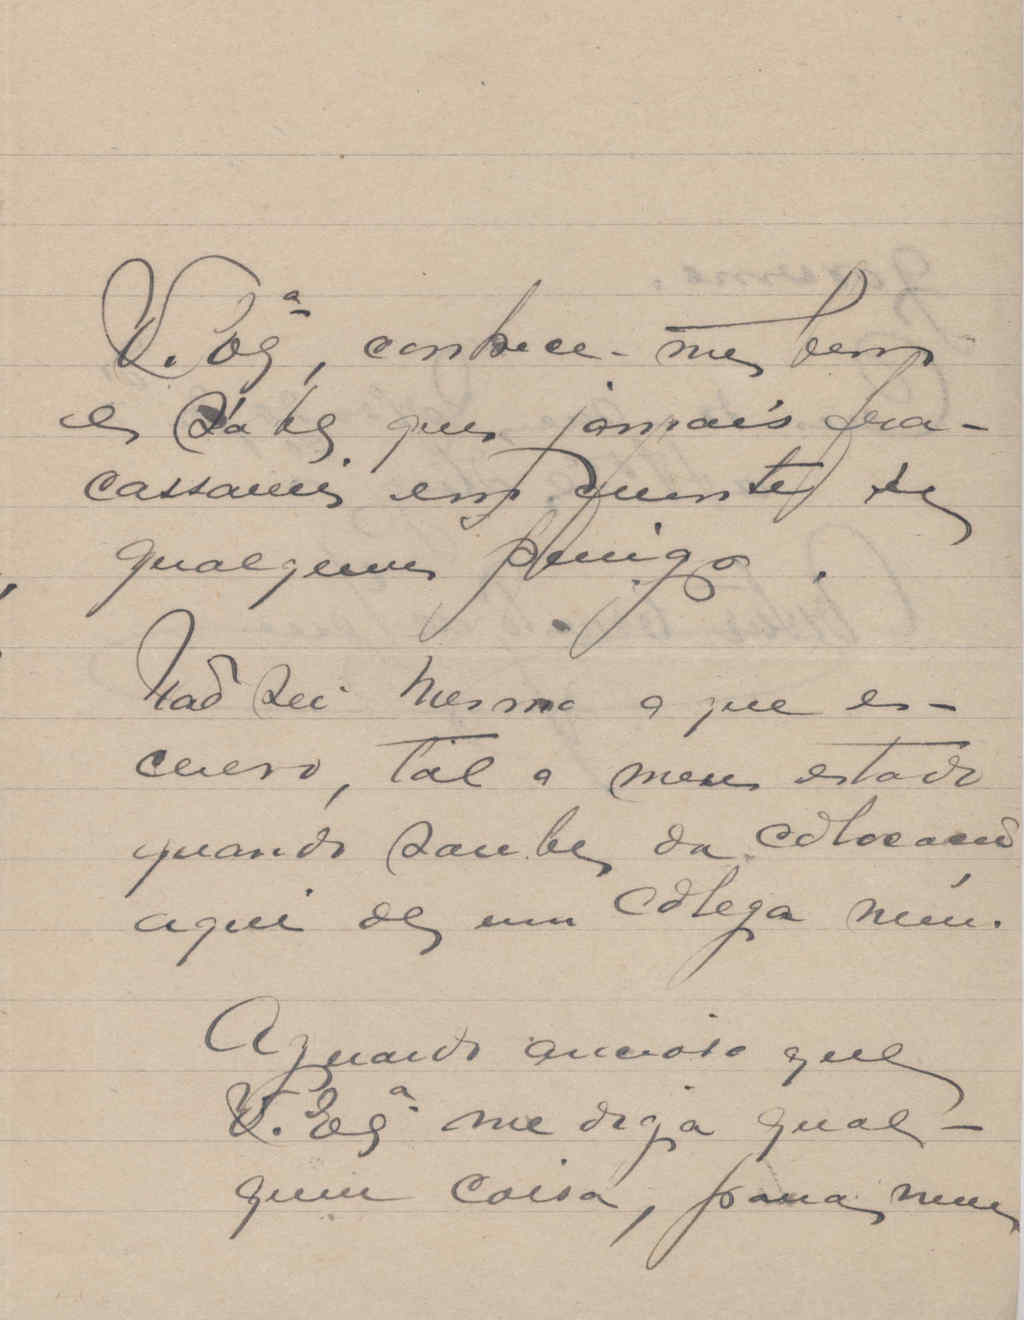 V. Exª, conhece-me bem
e sabe que jamais fra-
cassarei em frente de
qualquer perigo.
Não sei mesmo o que es-
crevo, tal o meu estado
quando soube da colocação
aqui de um colega meu.
Aguardo ancioso que
V. Exª me diga qual-
quer coisa, para meu